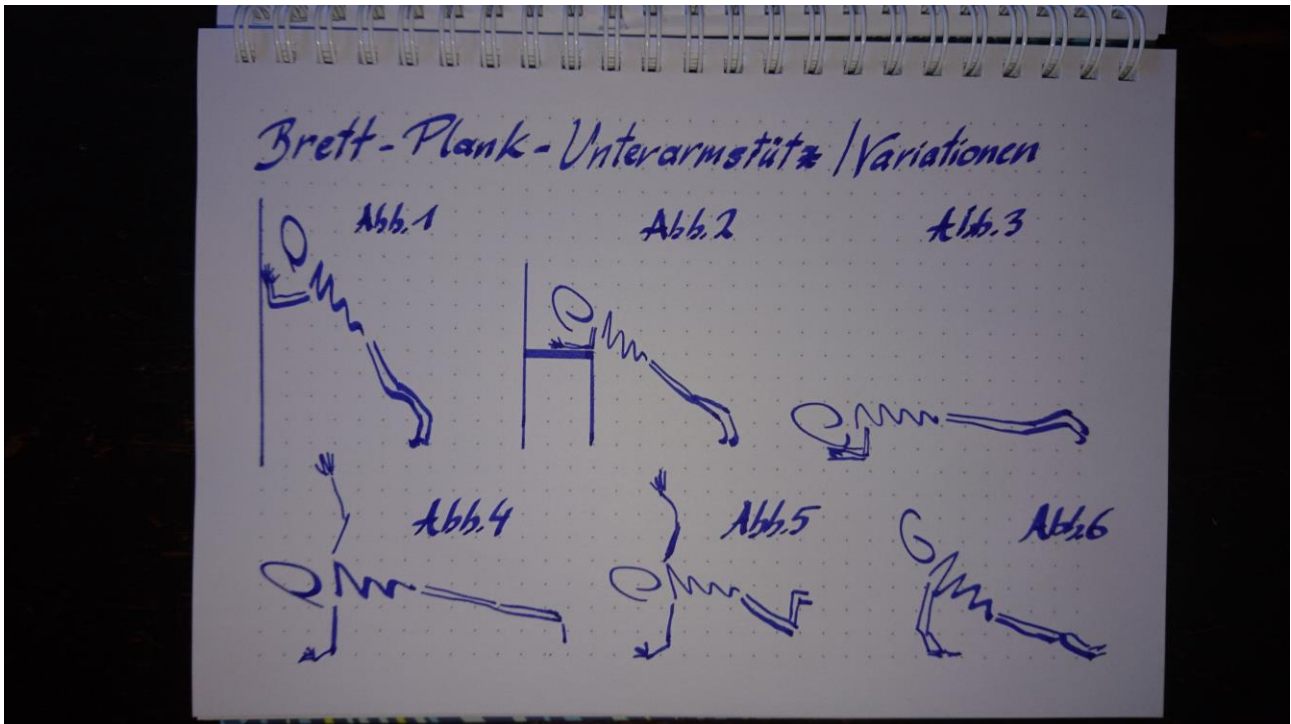 Brett-Plank-Unterarmstütz/Variationen
Abb.1 Abb.2 Abb.3
Abb.4 Abb.5 Abb.6